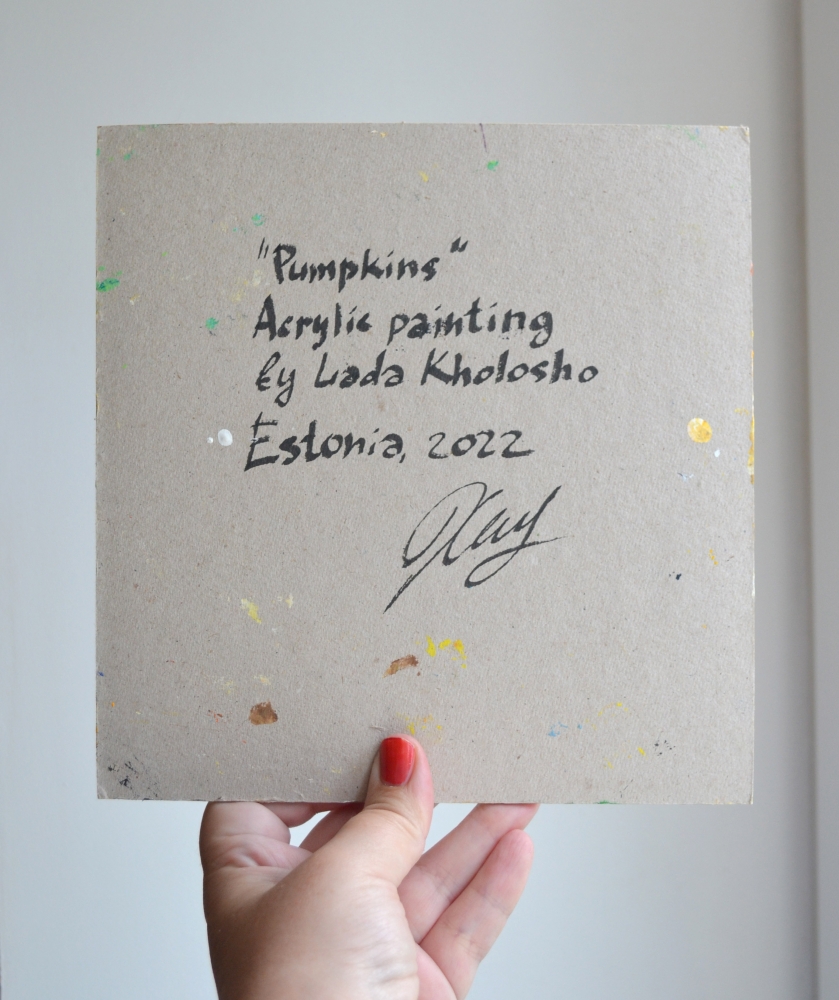 "Pumpkins"
Acrylic painting
by Lada Kholosho
Estonia, 2022